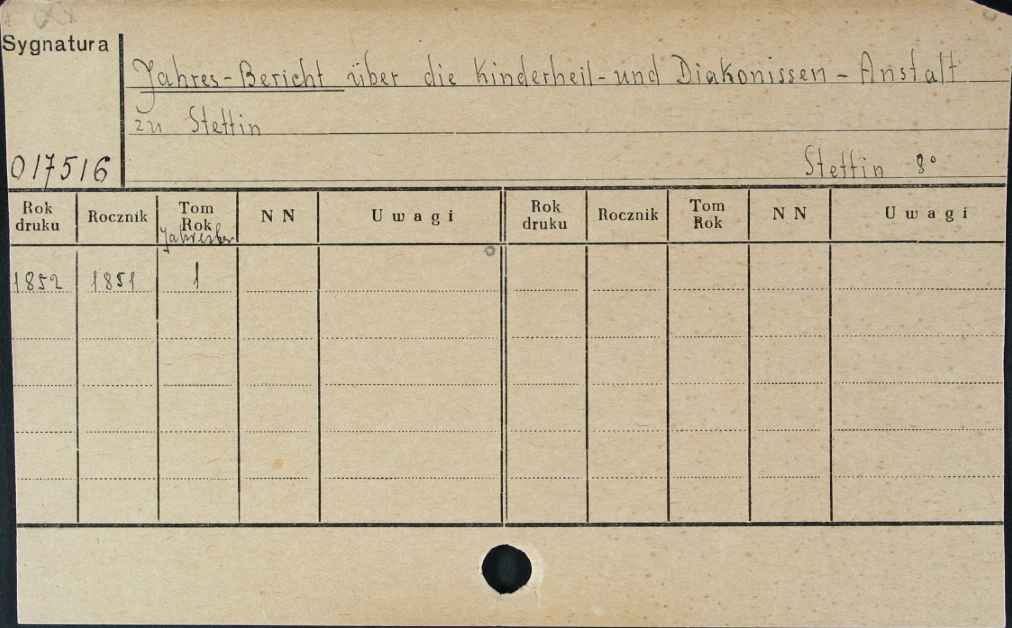 Sygnatura
Jahres-Bericht über die Kinderheil- und Diakonissen-Anstalt
zu Stettin
017516
Stettin 8°
Rok druku Rocznik Tom Rok Jahresber N N Uwagi Rok druku Rocznik Tom Rok N N Uwagi
1852 1851 1